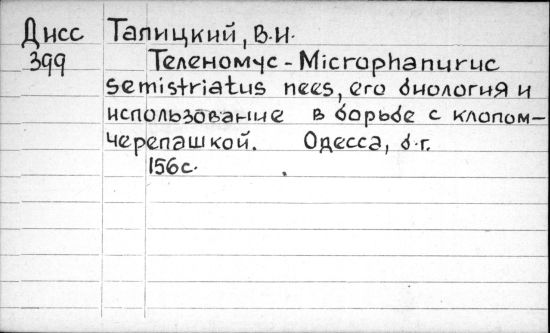 Дисс Талицкий, В.И.
399 Теленомус - Microphanuruc
semistriatus nees, его биология и
использование в борьбе с клопом-
черепашкой. Одесса, б.г.
156с.